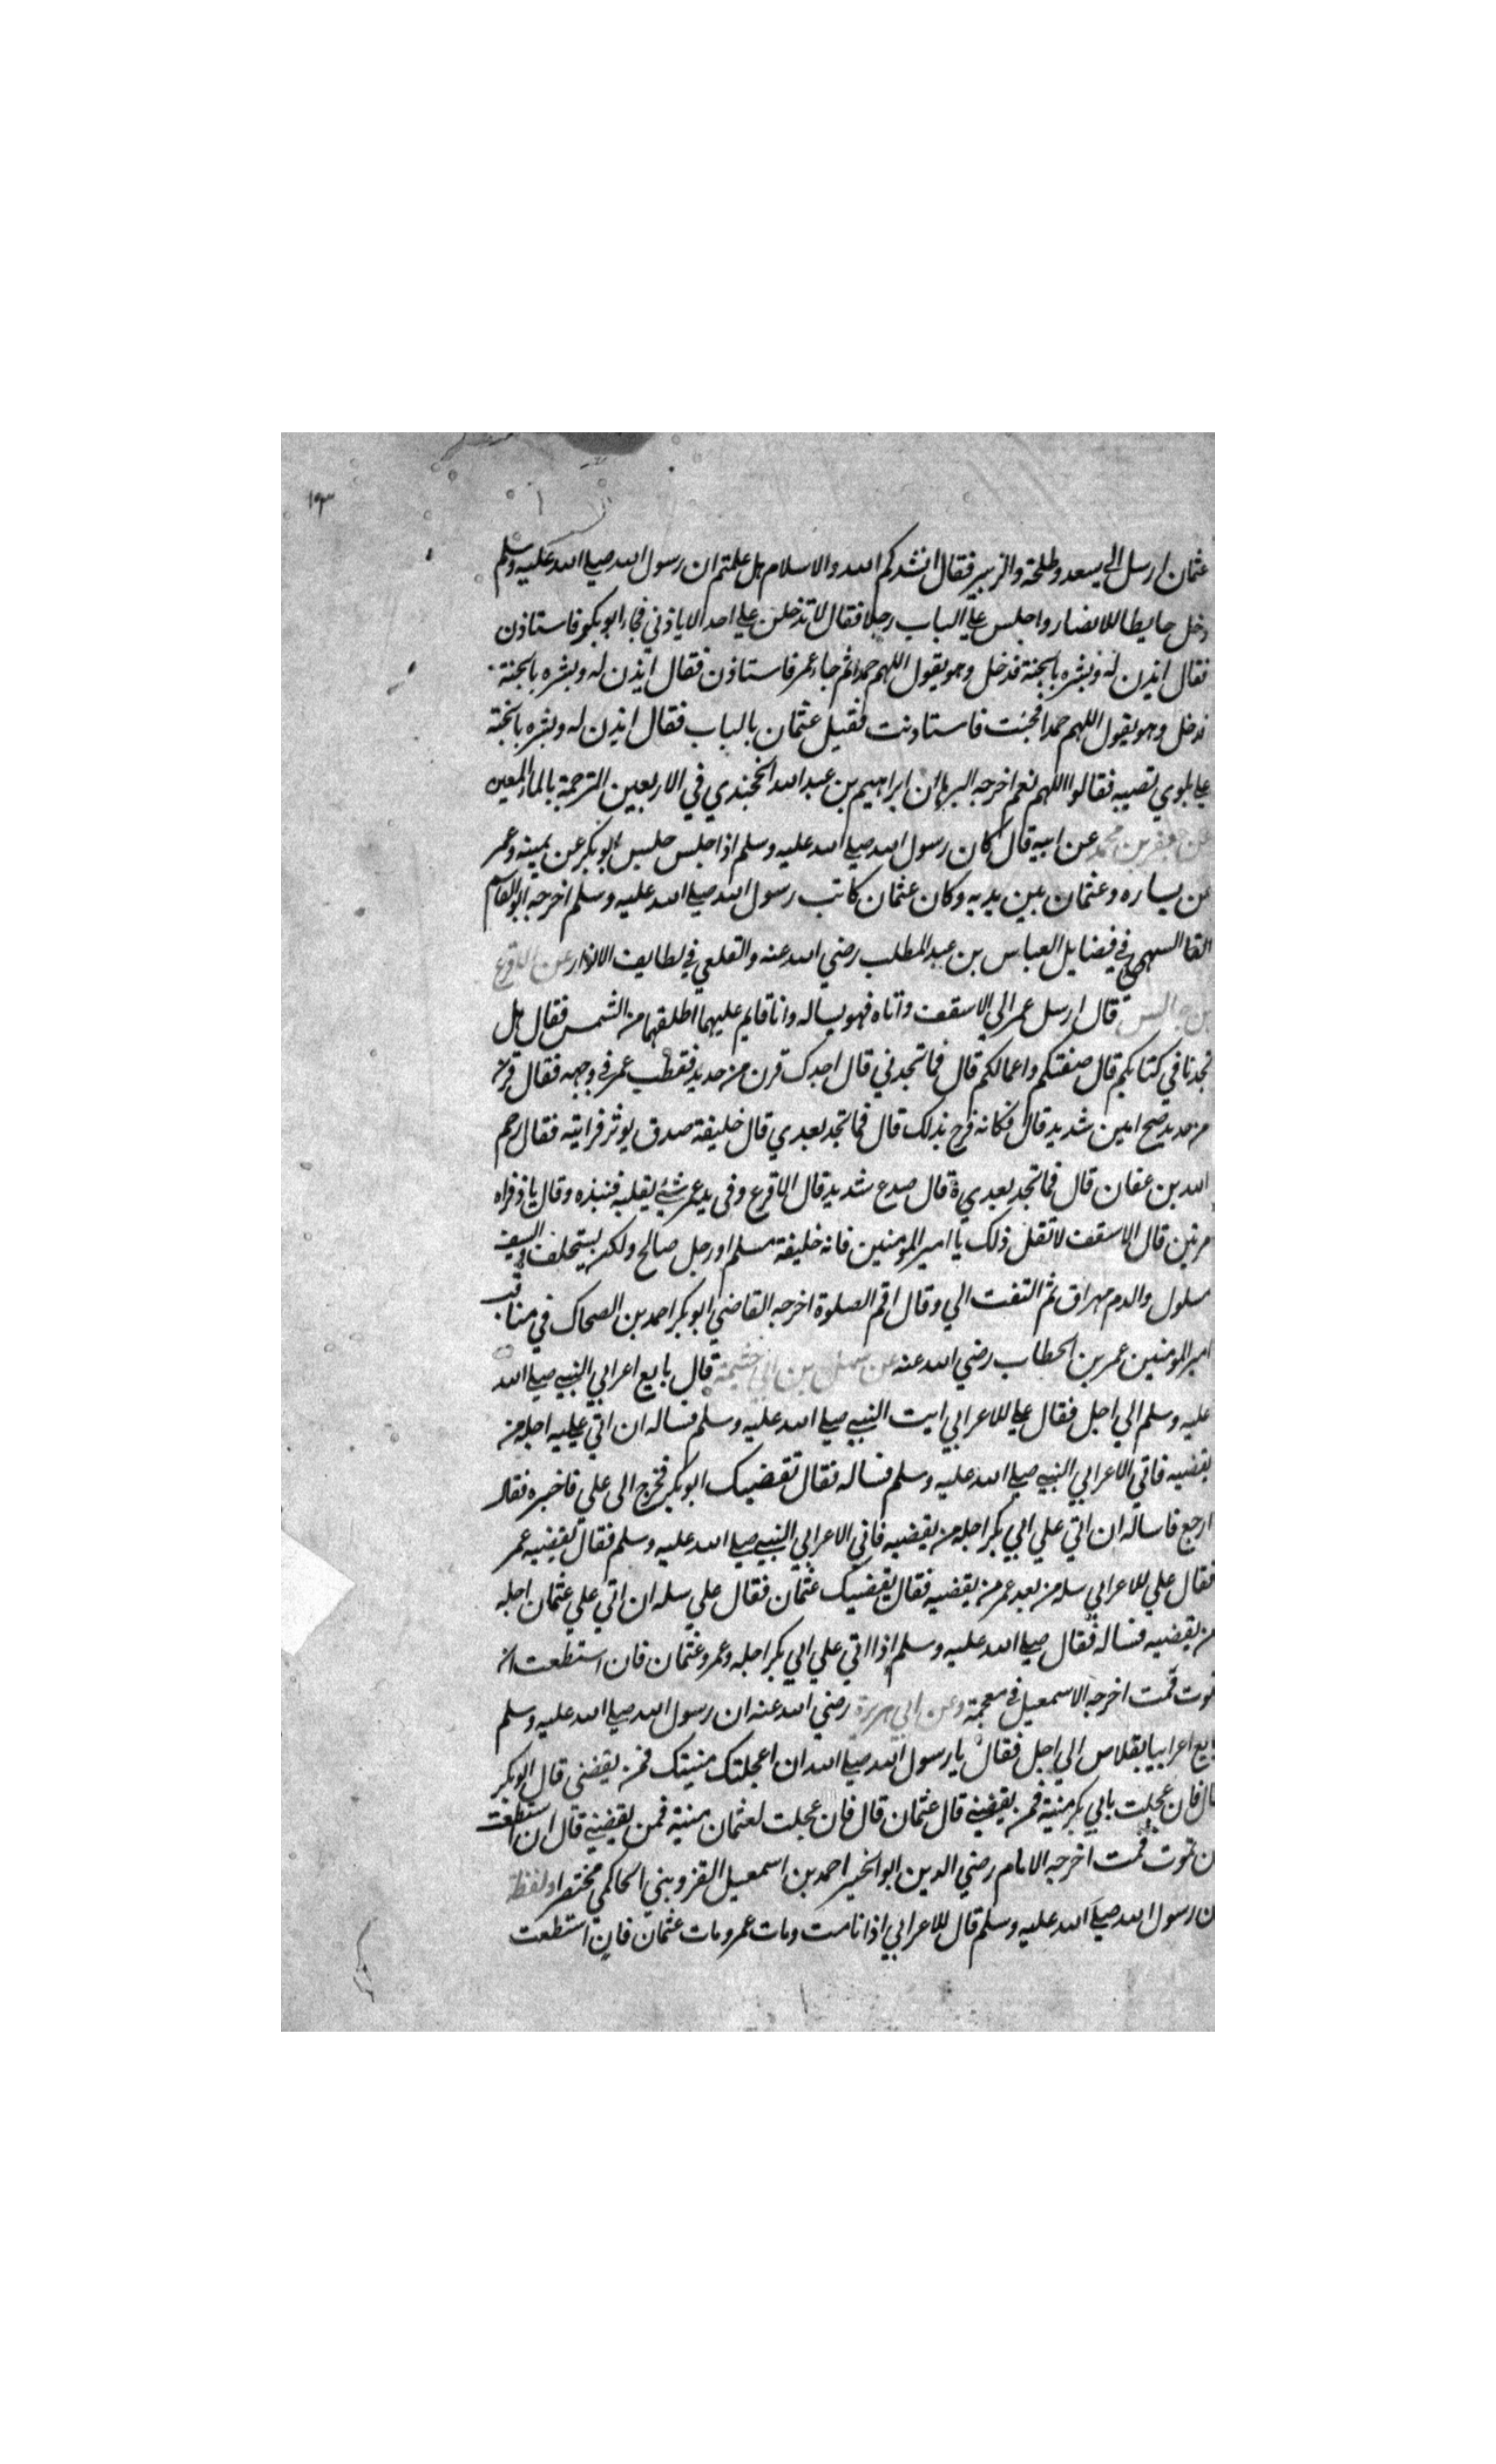 ١٩٣
عثمان ارسل الي سعد وطلحة والزبير فقال انشدكم الله والاسلام هل علمتم ان رسول الله صلي الله عليه وسلم
دخل حايطا للانصار واجلس علي الباب رجلا فقال لا تدخلن علي احد الا باذني فجاء ابوبكر فاستاذن
فقال ايذن له وبشره بالجنة فدخل وهو يقول اللهم حمدا ثم جاء عمر فاستاذن فقال ايذن له وبشره بالجنة
فدخل وهو يقول اللهم حمدا فجئت فاستاذنت فقيل عثمان بالباب فقال ايذن له وبشره بالجنة
علي بلوي تصيبه فقالوا اللهم نعم اخرجه البرهان ابراهيم بن عبد الله الخجندي في الاربعين المترجمة بالماء المعين
عن جعفر بن محمد عن ابيه قال كان رسول الله صلي الله عليه وسلم اذا جلس جلس ابوبكر عن يمينه وعمر
عن يساره وعثمان بين يديه وكان عثمان كاتب رسول الله صلي الله عليه وسلم اخرجه ابوالقاسم
السهمي في فضايل العباس بن عبد المطلب رضي الله عنه والقلعي في لطايف الانوار عن الاقرع
قال ارسل عمر الي الاسقف واتاه فهو يساله وانا قايم عليهما اظلهما من الشمس فقال هل
تجدنا في كتابكم قال صفتكم واعمالكم قال فما تجدني قال اجدك قرن من حديد فقطب عمر في وجهه فقال قرن
من حديد صح امين شديد قال فكانه فرح بذلك قال فما تجد بعدي قال خليفة صدق يوثر قرابته فقال رحم
الله بن عفان قال فما تجد بعدي قال صدع شديد قال الاقرع وفي يد عمر شئ يقلبه فنبذه وقال يا ذفراه
مرتين قال الاسقف لا تقل ذلك يا امير المومنين فانه خليفة مسلم او رجل صالح ولكن يستخلف والسيف
مسلول والدم مهراق ثم التفت الي وقال اقم الصلوة اخرجه القاضي ابوبكر احمد بن الضحاك في مناقب
امير المومنين عمر بن الخطاب رضي الله عنه عن سهل بن ابي حثيمة قال بايع اعرابي النبي صلي الله
عليه وسلم الي اجل فقال علي للاعرابي ايت النبي صلي الله عليه وسلم فساله ان اتي عليه اجله من
يقضيه فاتي الاعرابي النبي صلي الله عليه وسلم فساله فقال تقضيك ابوبكر فخرج الي علي فاخبره فقال
ارجع فاساله ان اتي علي ابي بكر اجله من يقضيه فاتي الاعرابي النبي صلي الله عليه وسلم فقال يقضيه عمر
فقال علي للاعرابي سله من بعد عمر من يقضيه فقال يقضيك عثمان فقال علي سله ان اتي علي عثمان اجله
من يقضيه فساله فقال صلي الله عليه وسلم اذا اتي علي ابي بكر اجله وعمر وعثمان فان استطعت ان
تموت فمت اخرجه الاسمعيلي في معجمة وعن ابي هريرة رضي الله عنه ان رسول الله صلي الله عليه وسلم
بايع اعرابيا بقلاص الي اجل فقال يا رسول الله صلي الله ان اعجلتك منيتك فمن يقضني قال ابوبكر
قال فان عجلت بابي بكر منية فمن يقضيني قال عثمان قال فان عجلت لعثمان منية فمن يقضيني قال ان استطعت
ان تموت فمت اخرجه الامام رضي الدين ابو الخير احمد بن اسمعيل القزويني الحاكمي مختصرا ولفظه
ان رسول الله صلي الله عليه وسلم قال للاعرابي اذا انا مت ومات عمر ومات عثمان فان استطعت